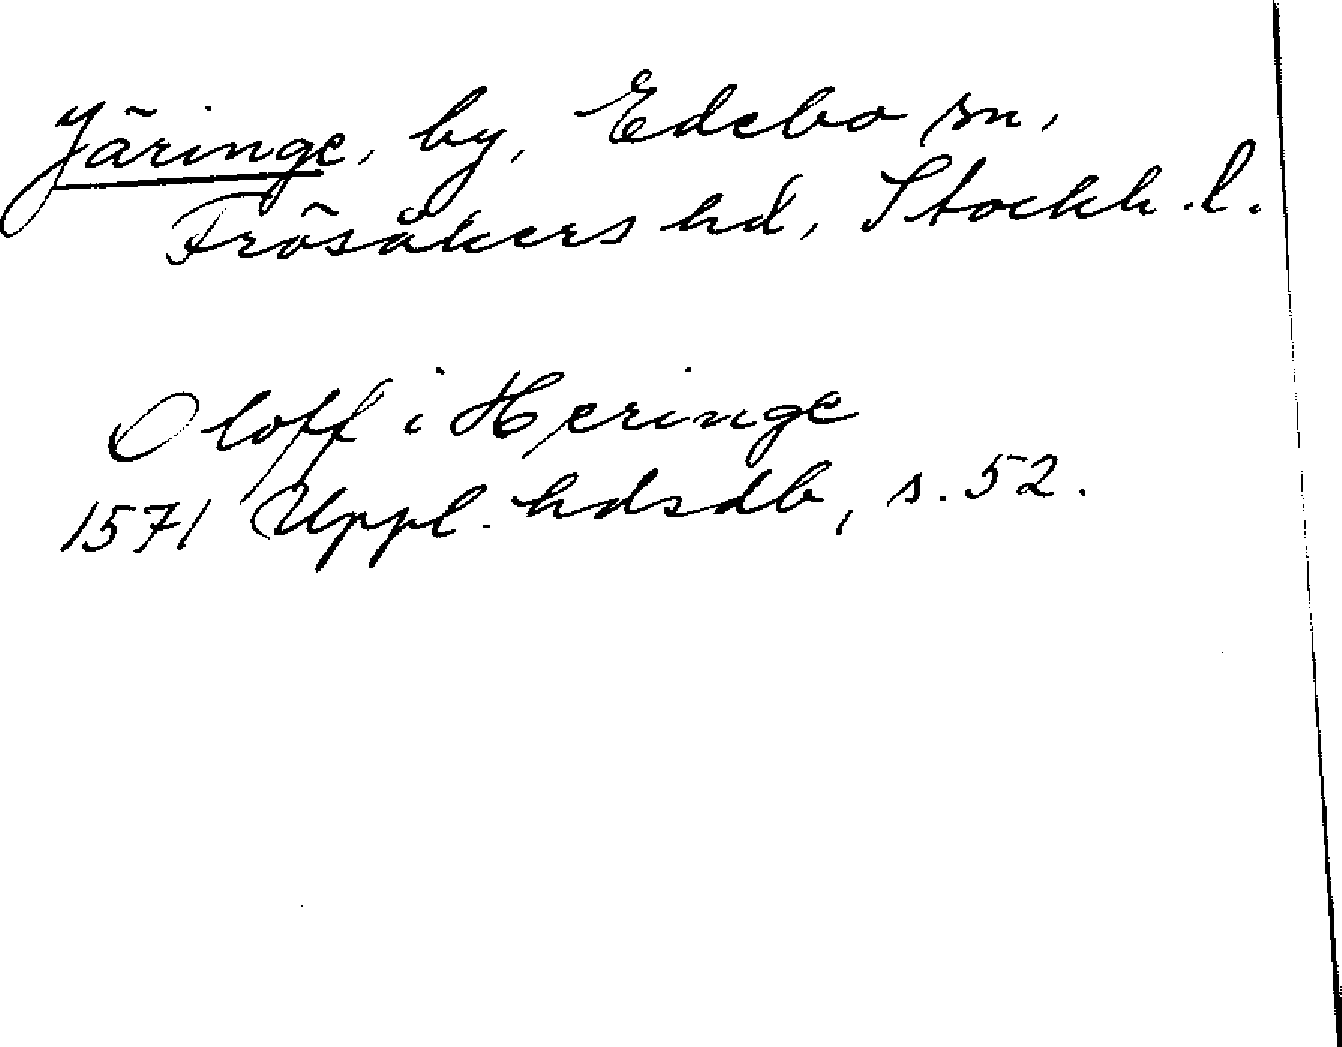 Järinge, by, Edebo sn,
Frösåkers hd, Stockh. l.
Oloff i Heringe
1571 Uppl. hdsdb, s. 52.